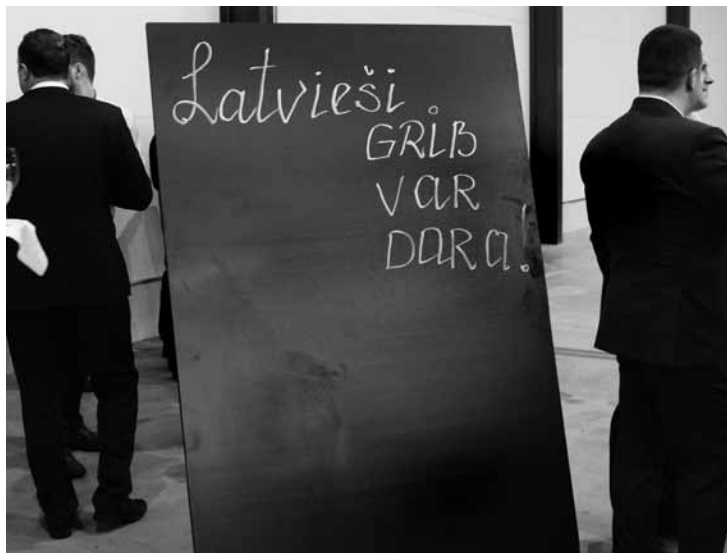 Latvieši
GRIB
VAR
DARA!